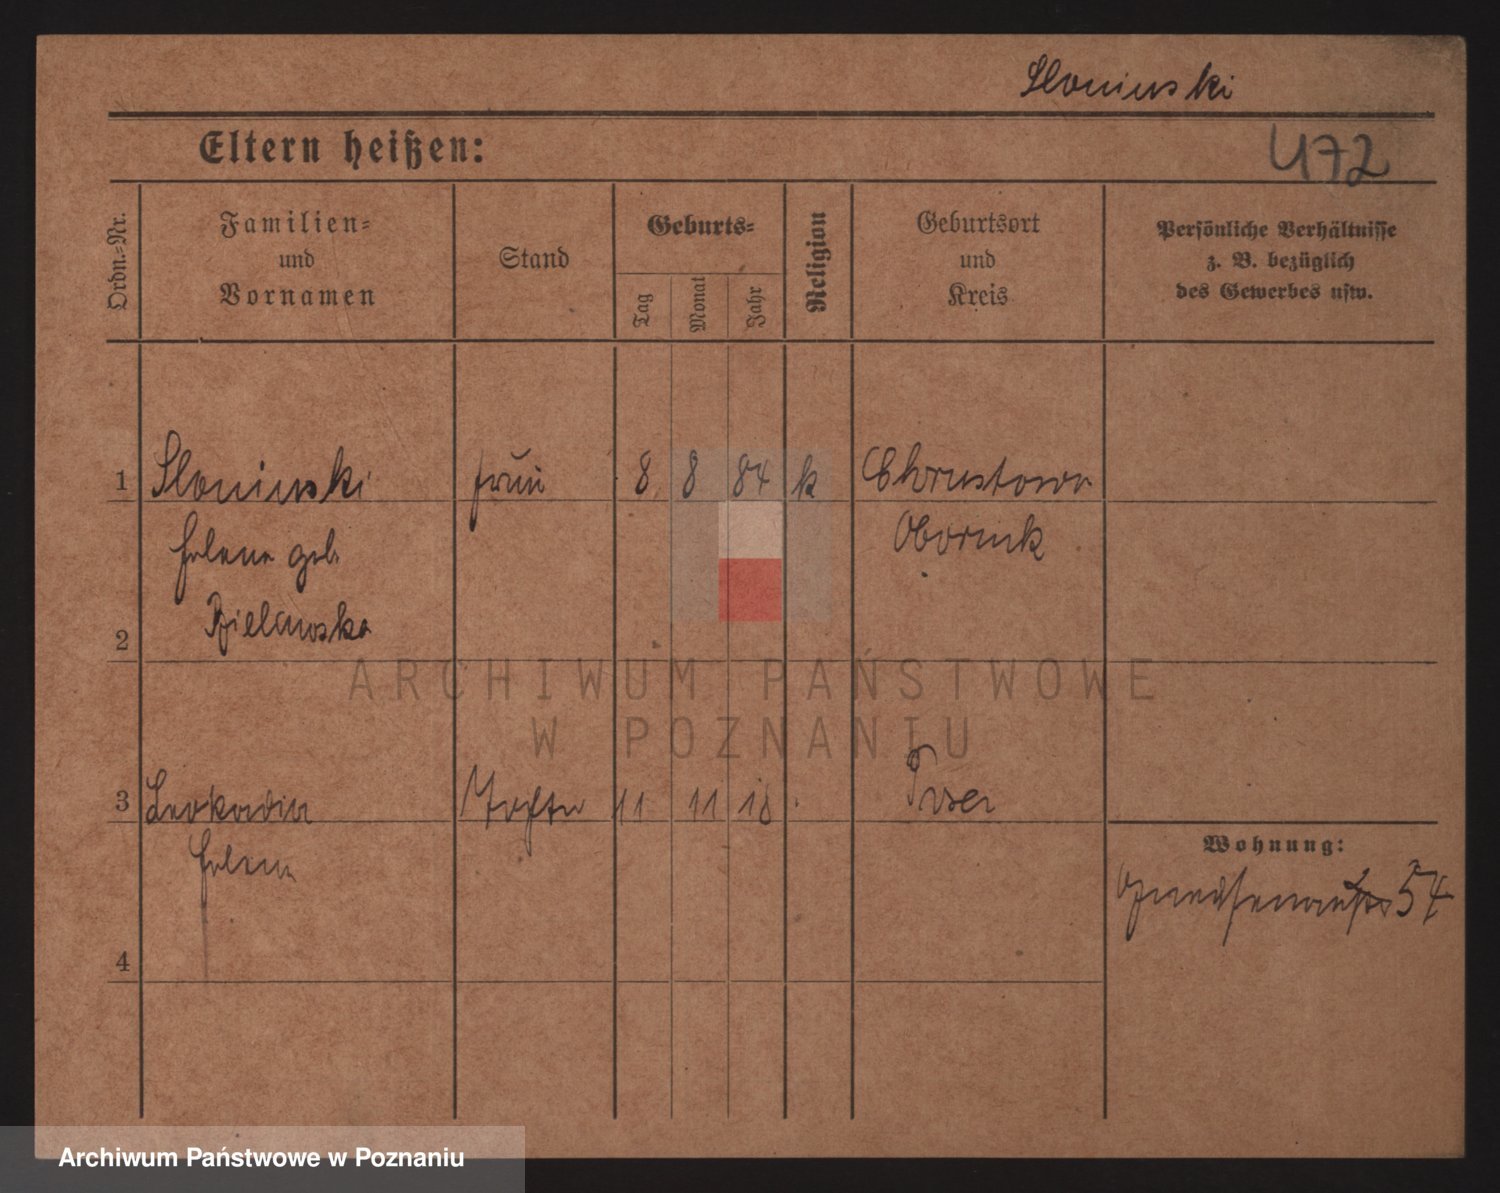 Sloninski
Eltern heißen:
472
Ordn.-Nr.
Familien-
und
Vornamen
Stand
Geburts-
Tag
Monat
Jahr
Religion
Geburtsort
und
Kreis
Persönliche Verhältnisse
z. B. bezüglich
des Gewerbes usw.
1 Sloninski frau 8 8 84 k Chrustowo
Helene geb. Obornik
Bielawska
2
3 Leokadia Tochter 11 11 18 Posen
Helene
Wohnung:
54
4
ARCHIWUM PAŃSTWOWE
W POZNANIU
Archiwum Państwowe w Poznaniu